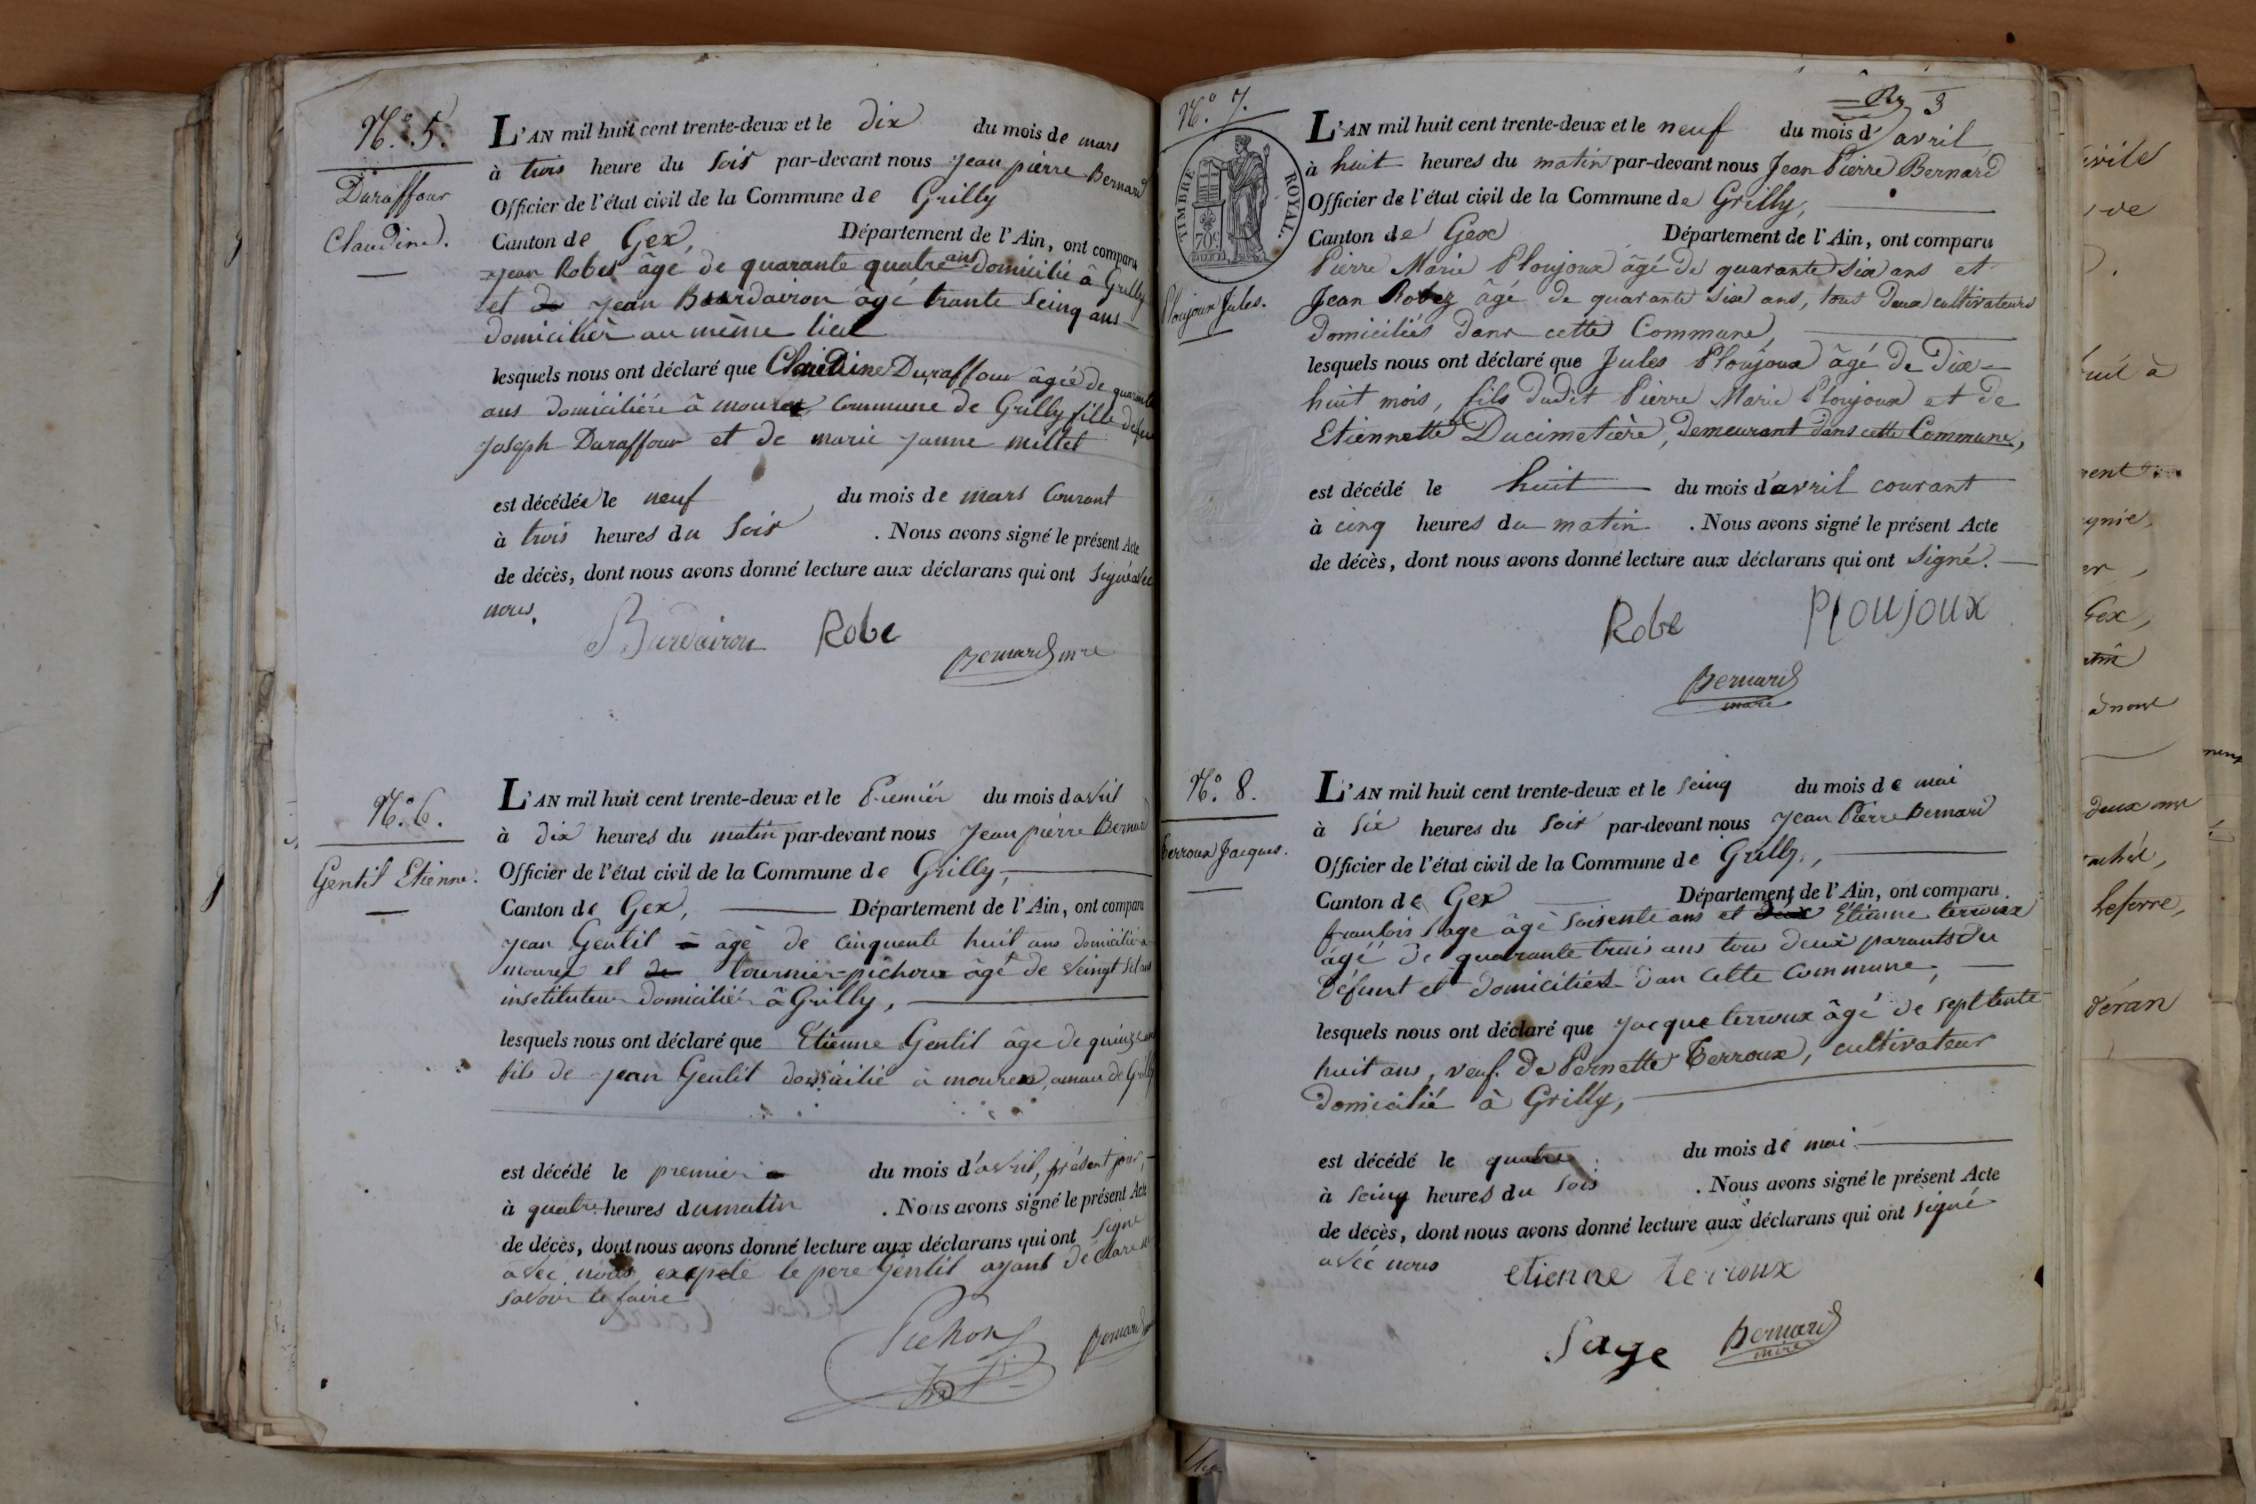 N.° 5.
Duraffour
Claudine.
L'AN mil huit cent trente-deux et le dix du mois de mars
à trois heure du soir par-devant nous jean pièrre Bernard
Officier de l'état civil de la Commune de Grilly
Canton de Gex, Département de l'Ain, ont comparu
jean Robes âgé de quarante quatre ans domicilié à Grilly
et de jean Bourdairon agé trante scinq ans
domiciliér au mème lieu
lesquels nous ont déclaré que Claudine Duraffour âgée de quarante
ans domiciliére à mourex Commune de Grilly fille de feu
joseph Duraffour et de marie janne millet
est décédée le neuf du mois de mars Courant
à trois heures du soir . Nous avons signé le présent Acte
de décès, dont nous avons donné lecture aux déclarans qui ont signé avec
nous.
Burdairon Robe
Bernard mre
N.° 6.
Gentil Etienne.
L'AN mil huit cent trente-deux et le Premiér du mois d avril
à dix heures du matin par-devant nous jean pièrre Bernard
Officier de l'état civil de la Commune de Grilly,
Canton de Gex, Département de l'Ain, ont comparu
jean Gentil agé de cinquente huit ans domicilié a
mourex et de tournier-pichoux âgé de veingt set ans
instituteur domiciliér à Grilly,
lesquels nous ont déclaré que Étienne Gentil âge de quinze ans
fils de jean Gentil domicilié à mourex, de Grilly
est décédé le premier du mois d'avril, présent jour,
à quatre heures du matin . Nous avons signé le présent Acte
de décès, dont nous avons donné lecture aux déclarans qui ont signé
avec nous exepté le pere Gentil ayant déclaré ne
savoir le faire
Pichon
Bernard
3
N.° 7.
TIMBRE ROYAL.
70c
Ploujoux Jules.
L'AN mil huit cent trente-deux et le neuf du mois d' avril
à huit heures du matin par-devant nous Jean Pierre Bernard
Officier de l'état civil de la Commune de Grilly,
Canton de Gex Département de l'Ain, ont comparu
Pierre Marie Ploujoux âgé de quarante six ans et
Jean Robez âgé de quarante six ans, tous deux cultivateurs
domiciliés dans cette Commune,
lesquels nous ont déclaré que Jules Ploujoux âgé de Dix-
huit mois, fils dudit Pierre Marie Ploujoux et de
Etiennette Ducimetière, demeurant dans cette Commune,
est décédé le huit du mois d'avril courant
à cinq heures du matin . Nous avons signé le présent Acte
de décès, dont nous avons donné lecture aux déclarans qui ont signé.
Robe Ploujoux
Bernard
maire
N.° 8.
Terroux Jacques.
L'AN mil huit cent trente-deux et le scinq du mois de mai
à six heures du soir par-devant nous jean Pierre Bernard
Officier de l'état civil de la Commune de Grilly,
Canton de Gex Département de l'Ain, ont comparu
franlois sage âgé soisente ans et deux Étienne terroux
âgé de quarante trois ans tous deux parants du
défunt et domiciliést dan cette Commune,
lesquels nous ont déclaré que jacque terroux âgé de septtente
huit ans, veuf de Pernette Terroux, cultivateur
domicilié à Grilly,
est décédé le quatre du mois de mai
à scinq heures du soir . Nous avons signé le présent Acte
de décès, dont nous avons donné lecture aux déclarans qui ont signé
avéc nous
etienne terroux
Sage Bernard
mire